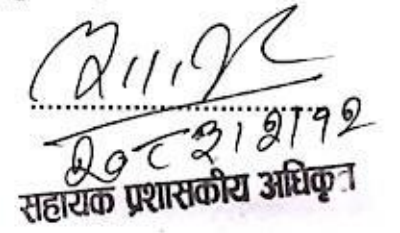 २०८३।२।१२
सहायक प्रशासकीय अधिकृत